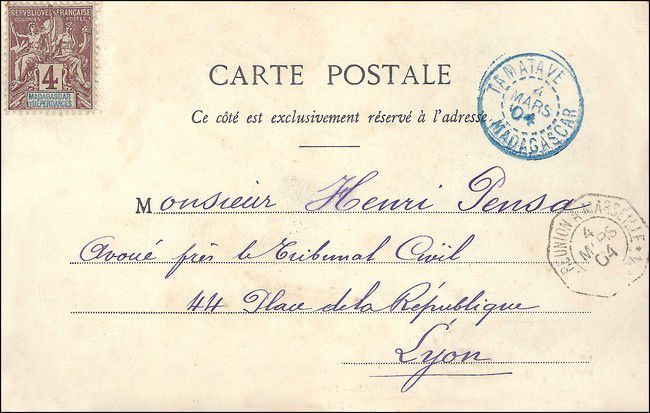 REPUBLIQUE FRANÇAISE
COLONIES POSTES
4
MADAGASCAR
ET DEPENDANCES
CARTE POSTALE
Ce côté est exclusivement réservé à l'adresse
TAMATAVE
4
MARS
04
MADAGASCAR
Monsieur Henri Pensa
Avoué près le Tribunal Civil
44 Place de la République
Lyon
REUNION A MARSEILLE
4
MARS
04